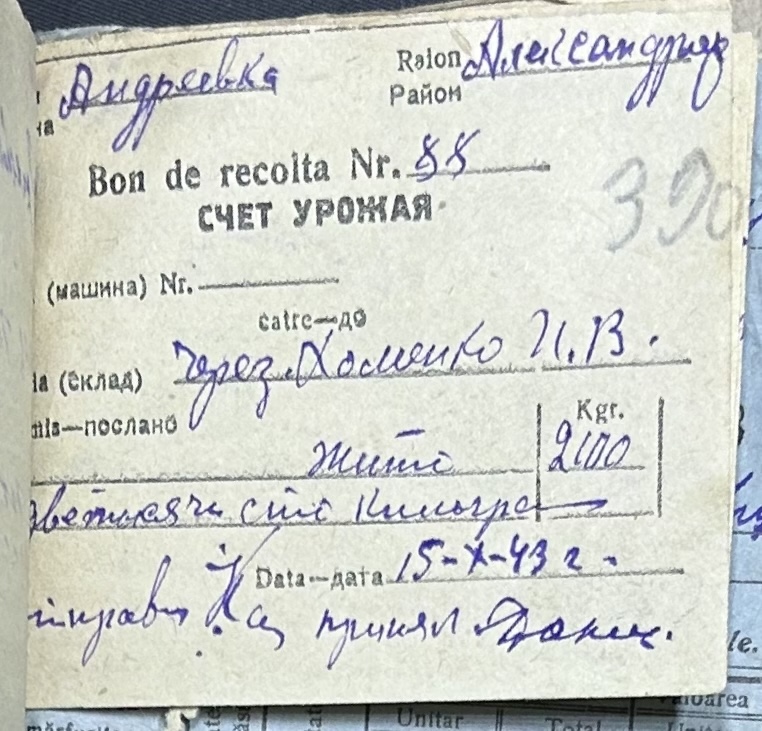 Андреевка
Raion Александр
на Район
Bon de recolta Nr. 88
СЧЕТ УРОЖАЯ
390
(машина) Nr.
catre—до
ia (склад) через Хоменко И.В.
mis—послано
Kgr.
жито 2100
дветисячи сто килогра
Data—дата 15-X-43 г.
принял
le.
Unitar
Total
valoarea